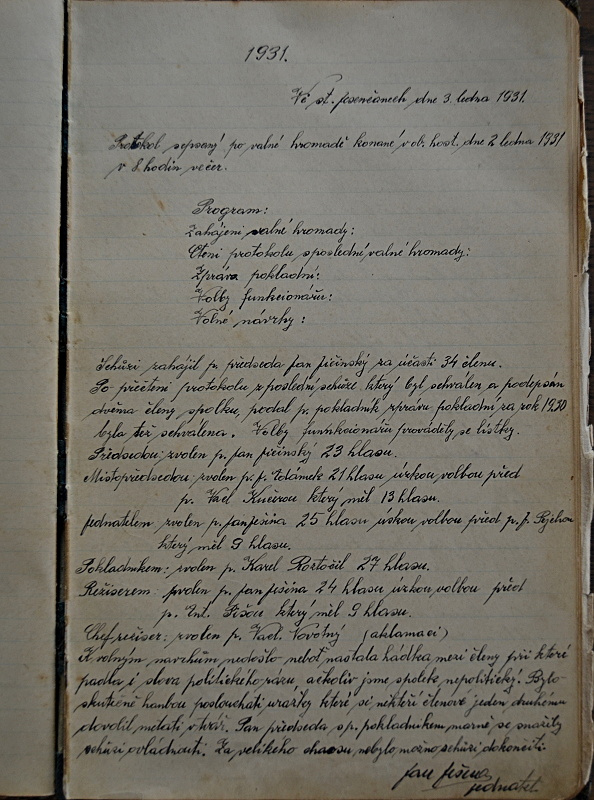 1931.
Ve st. Jesenčanech, dne 3. ledna 1931.
Protokol sepsaný po valné hromadě konané v ob. host. dne 2 ledna 1931
v 8. hodin večer.
Program:
Zahájení valné hromady:
Čtení protokolu s poslední valné hromady:
Zpráva pokladní:
Volby funkcionářu:
Volné návrhy:
Schůzi zahájil p. předseda Jan Jičinský za účasti 34 členu.
Po přečtení protokolu z poslední schůze, který byl schválen a podepsán
dvěma členy spolku, podal p. pokladník zprávu pokladní za rok 1930
byla též schválena. Volby funkcionářu prováděly se lístky.
Předsedou: zvolen p. Jan Jičinský 23 hlasu.
Místopředsedou: zvolen p. J. Adámek 21 hlasu úzkou volbou před
p. Václ Kučerou který měl 13 hlasu.
Jednatelem zvolen p. Jan Ješina 25 hlasu úskou volbou před p. J.
který měl 9 hlasu.
Pokladníkem: zvolen p. Karel Roztočil 27 hlasu.
Režiserem: zvolen p. Jan Ješina 24 hlasu úzkou volbou před
p. Ant. který měl 9 hlasu.
Chef režiser: zvolen p. Václ. Novotný (aklamací)
K volným navrhům nedošlo neboť nastala hádka mezi členy při které
padla i slova politického rázu ačkoliv jsme spolek nepolitický. Bylo
skutečně hanbou poslouchati urážky které si někteří členové jeden druhému
dovolil métati v tvář. Pan předseda s p. pokladníkem marně se snažily
schůzi ovládnouti. Za velikého chaosu nebylo možno schůzi dokončiti.
Jan Ješina
jednatel.